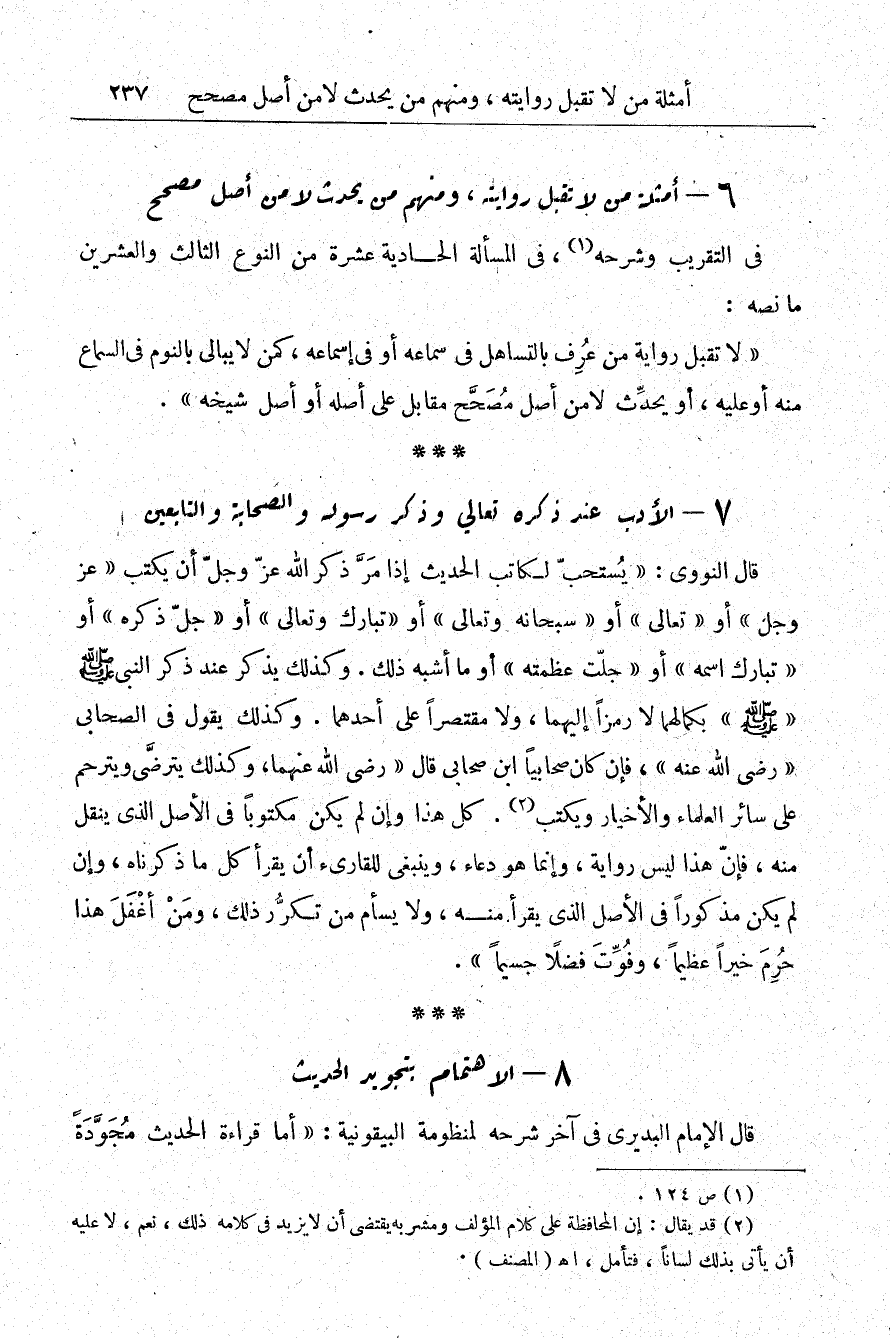 أمثلة من لا تقبل روايته ، ومنهم من يحدث لا من أصل مصحح ٢٣٧
٦ — أمثلة من لا تقبل روايته ، ومنهم من يحدث لا من أصل مصحح
فى التقريب وشرحه(١) ، فى المسألة الحـــادية عشرة من النوع الثالث والعشرين
ما نصه :
« لا تقبل رواية من عُرِف بالتساهل فى سماعه أو فى إسماعه ، كمن لا يبالى بالنوم فى السماع
منه أو عليه ، أو يحدِّث لا من أصل مُصَحَّح مقابل على أصله أو أصل شيخه » .
***
٧ — الأدب عند ذكره تعالي وذكر رسوله والصحابة والتابعين
قال النووى : « يُستحبّ لـكاتب الحديث إذا مَرَّ ذكر الله عزّ وجلّ أن يكتب « عز
وجل » أو « تعالى » أو « سبحانه وتعالى » أو « تبارك وتعالى » أو « جلّ ذكره » أو
« تبارك اسمه » أو « جلّت عظمته » أو ما أشبه ذلك . وكذلك يذكر عند ذكر النبى ﷺ
« ﷺ » بكمالهما لا رمزاً إليهما ، ولا مقتصراً على أحدهما . وكذلك يقول فى الصحابى
« رضى الله عنه » ، فإن كان صحابياً ابن صحابى قال « رضى الله عنهما ، وكذلك يترضَّى ويترحم
على سائر العلماء والأخيار ويكتب(٢) . كل هذا وإن لم يكن مكتوباً فى الأصل الذى ينقل
منه ، فإنّ هذا ليس رواية ، وإنما هو دعاء ، وينبغى للقارىء أن يقرأ كل ما ذكرناه ، وإن
لم يكن مذكوراً فى الأصل الذى يقرأ منـــه ، ولا يسأم من تـكرُّر ذلك ، ومَنْ أغْفَلَ هذا
حُرِمَ خيراً عظيماً ، وفُوِّتَ فضلًا جسيماً » .
***
٨ — الاهتمام بتجويد الحديث
قال الإمام البديرى فى آخر شرحه لمنظومة البيقونية : « أما قراءة الحديث مُجَوَّدَةً
(١) ص ١٢٤ .
(٢) قد يقال : إن المحافظة على كلام المؤلف ومشربه يقتضى أن لا يزيد فى كلامه ذلك ، نعم ، لا عليه
أن يأتى بذلك لساناً ، فتأمل ، اه ( المصنف ) .